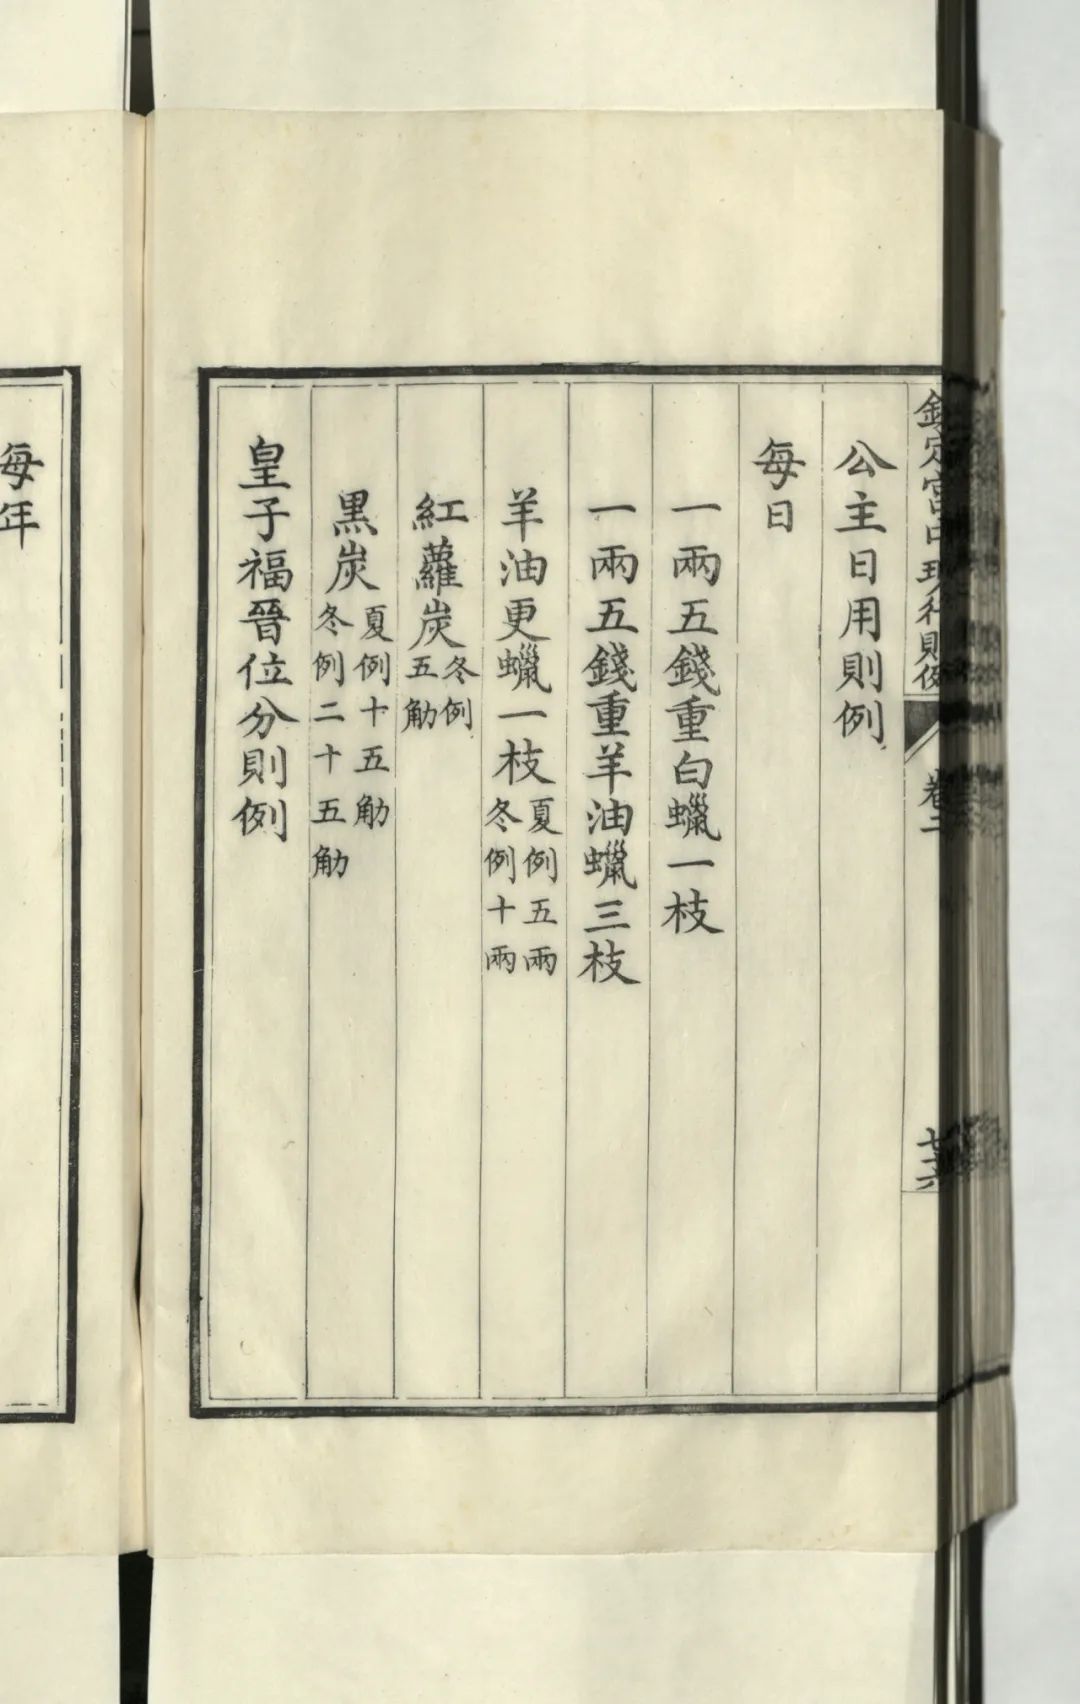 欽定宮中現行則例
卷二
公主日用則例
每日
一兩五錢重白蠟一枝
一兩五錢重羊油蠟三枝
羊油更蠟一枝夏例五兩冬例十兩
紅蘿炭冬例五觔
黑炭夏例十五觔冬例二十五觔
皇子福晉位分則例
每年